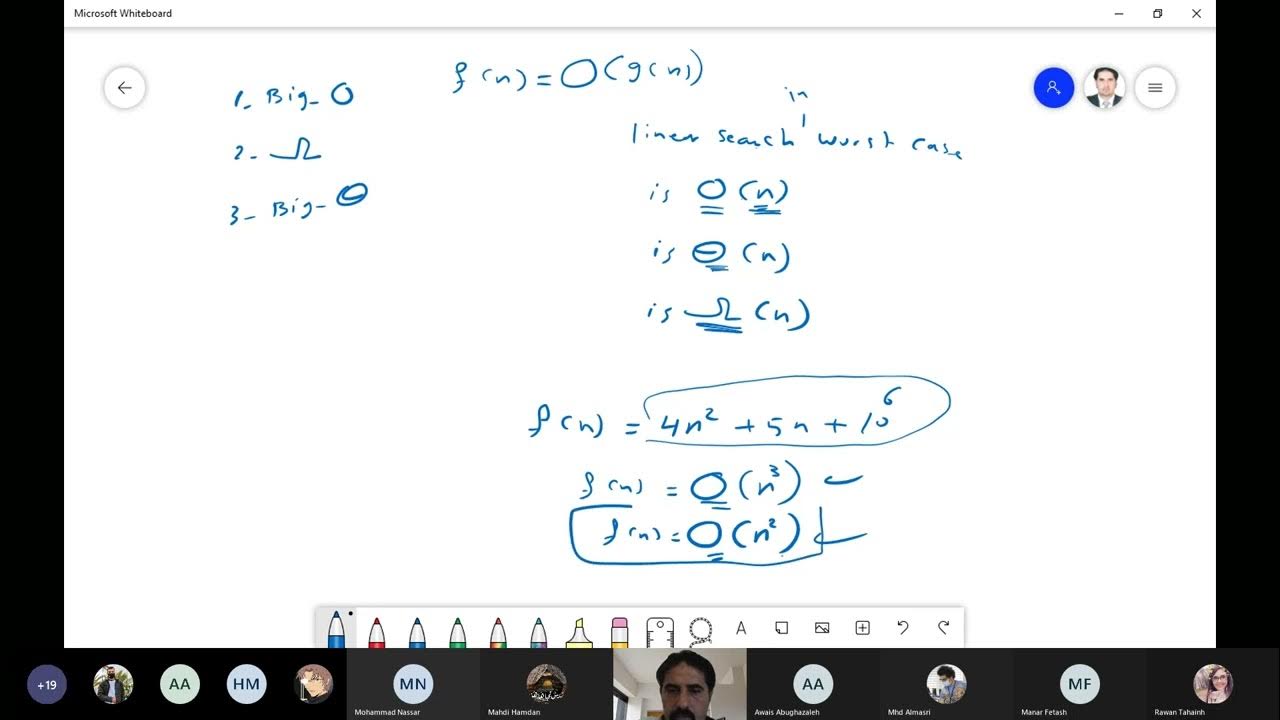 Microsoft Whiteboard
f(n) = O(g(n))
1- Big-O
2- Ω
3- Big-Θ
in
linear search worst case
is O(n)
is Θ(n)
is Ω(n)
f(n) = 4n² + 5n + 10⁶
f(n) = O(n³)
f(n) = O(n²)
A
+19
AA
HM
MN
AA
MF
Mohammad Nassar
Mahdi Hamdan
Awais Abughazaleh
Mhd Almasri
Manar Fetash
Rawan Tahainh